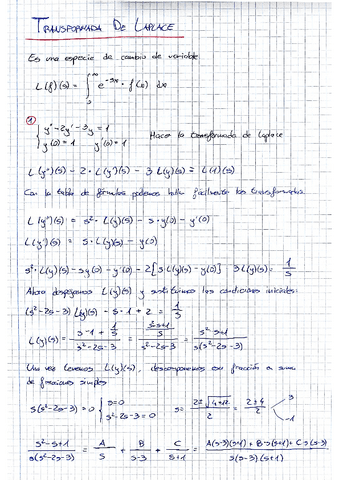 TRANSFORMADA DE LAPLACE
Es una especie de cambio de variable
L(f)(s) = ∫₀^∞ e^-sx · f(x) dx
①
{ y''-2y'-3y=1
y(0)=1 y'(0)=1 Hacer la transformada de Laplace
L(y'')(s) - 2·L(y')(s) - 3L(y)(s) = L(1)(s)
Con la tabla de fórmulas podemos hallar fácilmente las transformadas
L(y'')(s) = s²·L(y)(s) - s·y(0) - y'(0)
L(y')(s) = s·L(y)(s) - y(0)
s²·L(y)(s) - sy(0) - y'(0) - 2[s·L(y)(s) - y(0)] 3L(y)(s) = 1/s
Ahora despejamos L(y)(s) y sustituimos las condiciones iniciales:
(s²-2s-3)L(y)(s) - s - 1 + 2 = 1/s
L(y)(s) = (s-1+1/s)/(s²-2s-3) = ((s²-s+1)/s)/(s²-2s-3) = (s²-s+1)/(s(s²-2s-3))
Una vez tenemos L(y)(s), descomponemos la fracción a suma
de fracciones simples
s(s²-2s-3)=0 { s=0 s²-2s-3=0 s= (2±√(4+12))/2 = (2±4)/2 3 -1
(s²-s+1)/(s(s²-2s-3)) = A/s + B/(s-3) + C/(s+1) = (A(s-3)(s+1)+B·s(s+1)+C·s(s-3))/(s(s-3)(s+1))